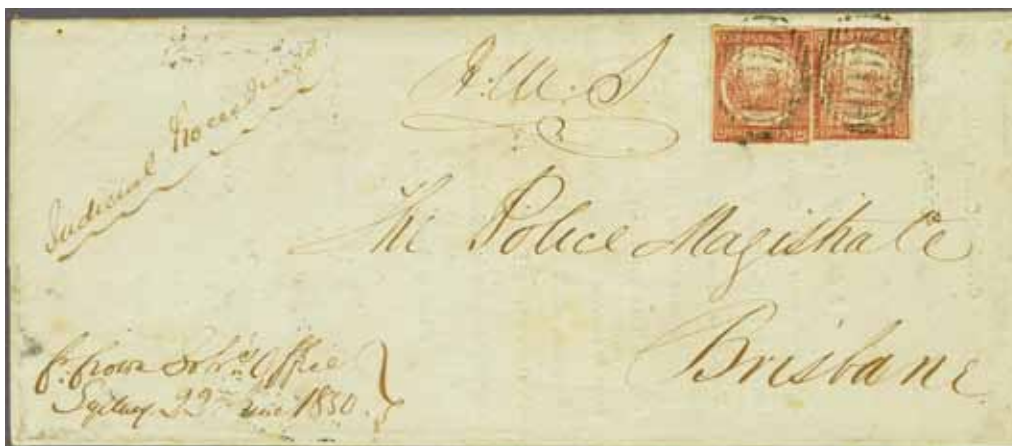 Judicial Proceedings
The Police Magistrate
Brisbane
Office
Sydney 22 June 1850